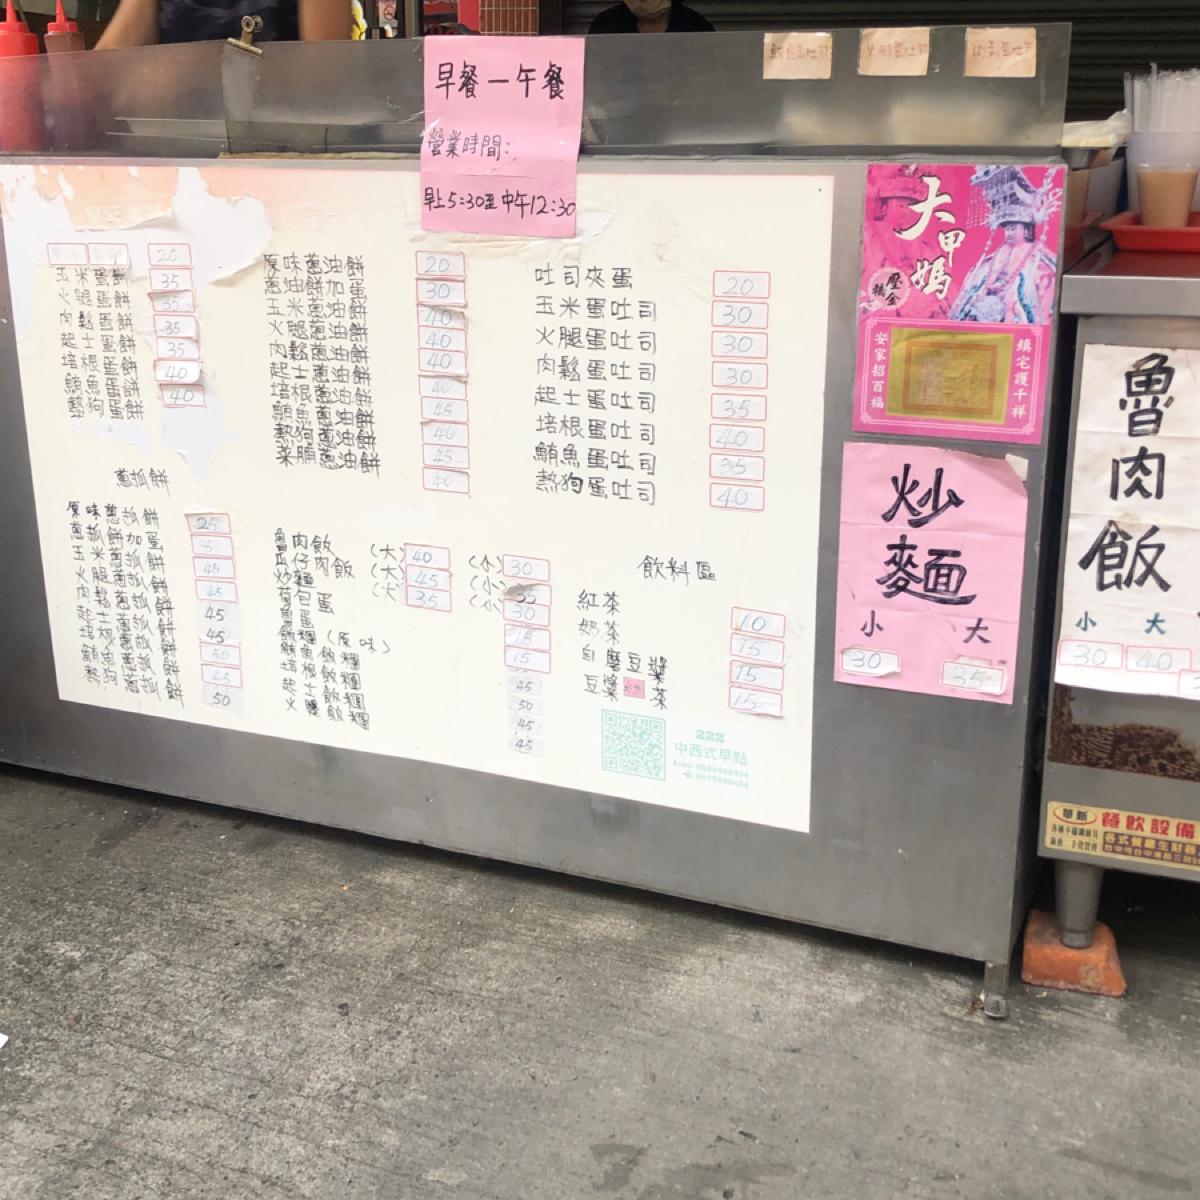 早餐一午餐
營業時間:
早上5:30至中午12:30
20
玉米蛋餅 35
火腿蛋餅 35
肉鬆蛋餅 35
起士蛋餅 35
培根蛋餅 40
鮪魚蛋餅
熱狗蛋餅 40
原味蔥油餅 20
蔥油餅加蛋 30
玉米蔥油餅 40
火腿蔥油餅 40
肉鬆蔥油餅 40
起士蔥油餅 40
培根蔥油餅 45
鮪魚蔥油餅 40
熱狗蔥油餅 45
菜脯蔥油餅 40
吐司夾蛋 20
玉米蛋吐司 30
火腿蛋吐司 30
肉鬆蛋吐司 30
起士蛋吐司 35
培根蛋吐司 40
鮪魚蛋吐司 35
熱狗蛋吐司 40
蔥抓餅
原味蔥抓餅 25
蔥抓餅加蛋 35
玉米蔥抓餅 45
火腿蔥抓餅 45
肉鬆蔥抓餅 45
起士蔥抓餅 45
培根蔥抓餅 50
鮪魚蔥抓餅 45
熱狗蔥抓餅 50
魯肉飯 (大) 40 (小) 30
瓜仔肉飯 (大) 45 (小) 35
炒麵 (大) 35 (小) 30
荷包蛋 15
魯蛋 15
飯糰(原味)
鮪魚飯糰 45
培根飯糰 50
起士飯糰 45
火腿飯糰 45
飲料區
紅茶 10
奶茶 15
自磨豆漿 15
豆漿紅茶 15
222
中西式早點
大甲媽
壓金
安家招百福
鎮宅護千祥
炒麵
小 大
30 35
魯肉飯
小 大
30 40
餐飲設備